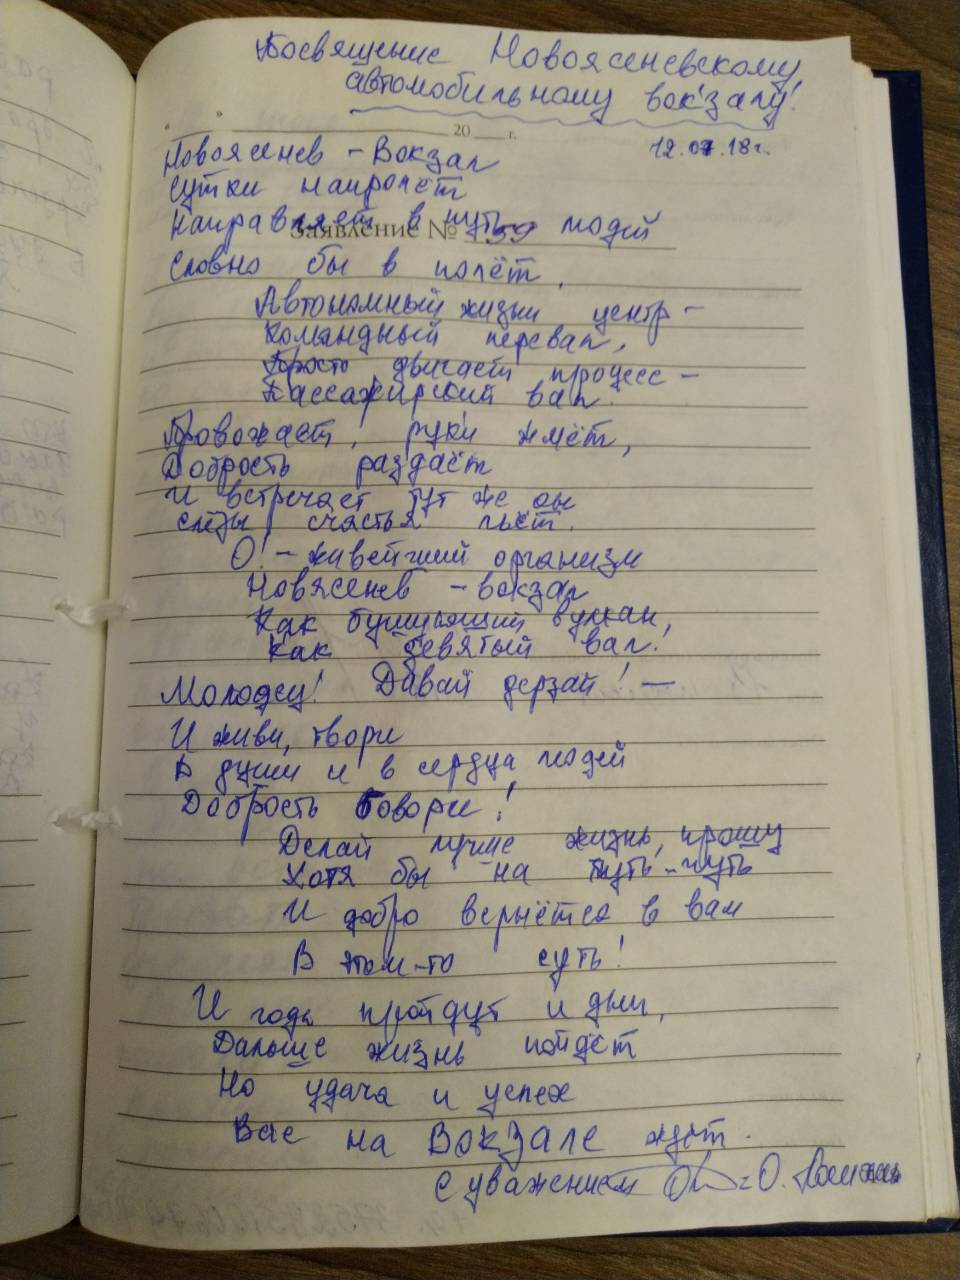 Посвящение Новоясеневскому
автомобильному вокзалу!
" " 20 г.
12.07.18г.
Новоясенев - Вокзал
Сутки напролёт
Направляет в путь людей
Заявление № 59
Словно бы в полёт.
Автономный жизни центр -
Командный перевал,
Просто двигает процесс -
Пассажирский вал.
Провожает, руки жмёт,
Добрость раздаёт
И встречает тут же он
слёзы счастья льёт.
О! - живейший организм
Новясенев - вокзал
Как бушующий вулкан,
Как девятый вал!
Молодец! Давай дерзай! —
И живи, твори
В души и в сердца людей
Добрость говори!
Делай лучше жизнь, прошу
Хотя бы на чуть-чуть
И добро вернётся в вам
В том-то суть!
И года пройдут и дни,
Дальше жизнь пойдёт
Но удача и успех
Вас на Вокзале ждёт.
С уважением О.